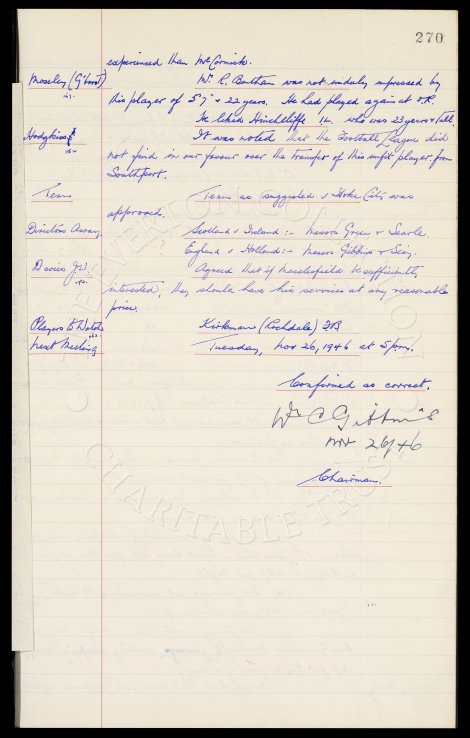 270
experienced than McCormick.
Moseley (G'boro') Mr. R. Bentham was not unduly impressed by
this player of 5'7" & 22 years. He had played again at O.R.
He liked Hinchcliffe I.L. who was 23 years & tall.
Hodgkiss It was noted that the Football League did
not find in our favour over the transfer of this unfit player from
Southport.
Team Team as suggested v Stoke City was
approved.
Directors Away. Scotland v Ireland :- Messrs Green & Searle
England v Holland :- Messrs Gibbins &
Davies J.W. Agreed that if Macclesfield be sufficiently
interested, they should have his services at any reasonable
price.
Players to Watch Kirkman (Rochdale) FB
Next Meeting Tuesday, Nov 26, 1946 at 5pm.
Confirmed as correct.
Wm C Gibbins
Nov 26/46
Chairman.
CHARITABLE TRUST